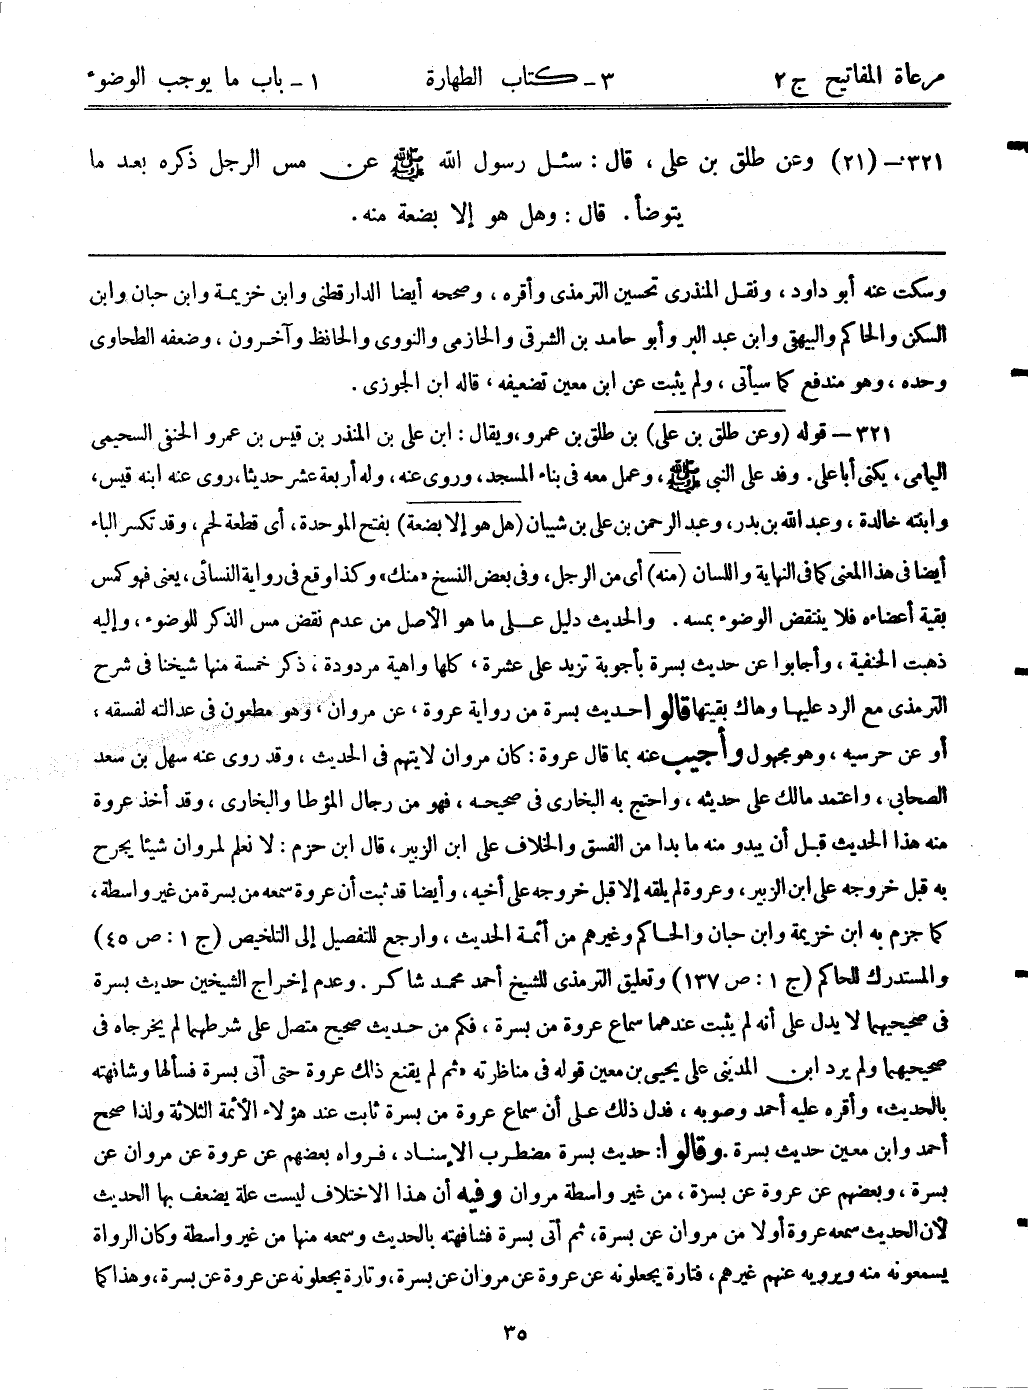 مرعاة المفاتيح ج ٢ ٣ـ كتاب الطهارة ١ـ باب ما يوجب الوضوء
٣٢١ـ (٢١) وعن طلق بن على ، قال : سئل رسول الله ﷺ عن مس الرجل ذكره بعد ما
يتوضأ . قال : وهل هو إلا بضعة منه .
وسكت عنه أبو داود ، ونقل المنذرى تحسين الترمذى وأقره ، وصححه أيضا الدارقطنى وابن خزيمة وابن حبان وابن
السكن والحاكم والبيهقى وابن عبد البر وأبو حامد بن الشرقى والحازمى والنووى والحافظ وآخرون ، وضعفه الطحاوى
وحده ، وهو مندفع كما سيأتى ، ولم يثبت عن ابن معين تضعيفه ، قاله ابن الجوزى .
٣٢١ – قوله (وعن طلق بن على) بن طلق بن عمرو، ويقال : ابن على بن المنذر بن قيس بن عمرو الحنفى السحيمى
اليمامى ، يكنى أبا على . وفد على النبى ﷺ ، وعمل معه فى بناء المسجد، وروى عنه ، وله أربعة عشر حديثا، روى عنه ابنه قيس،
وابنته خالدة ، وعبد الله بن بدر، وعبد الرحمن بن على بن شيبان (هل هو إلا بضعة) بفتح الموحدة ، أى قطعة لحم ، وقد تكسر الباء
أيضا فى هذا المعنى كما فى النهاية واللسان (منه) أى من الرجل ، وفى بعض النسخ «منك» وكذا وقع فى رواية النسائى ، يعنى فهو كمس
بقية أعضاءه فلا ينتقض الوضوء بمسه . والحديث دليل على ما هو الأصل من عدم نقض مس الذكر للوضوء ، وإليه
ذهبت الحنفية ، وأجابوا عن حديث بسرة بأجوبة تزيد على عشرة ، كلها واهية مردودة ، ذكر خمسة منها شيخنا فى شرح
الترمذى مع الرد عليها وهاك بقيتها قالوا حديث بسرة من رواية عروة ، عن مروان ، وهو مطعون فى عدالته لفسقه ،
أو عن حرسيه ، وهو مجهول وأجيب عنه بما قال عروة : كان مروان لا يتهم فى الحديث ، وقد روى عنه سهل بن سعد
الصحابى ، واعتمد مالك على حديثه ، واحتج به البخارى فى صحيحه ، فهو من رجال المؤطا والبخارى ، وقد أخذ عروة
منه هذا الحديث قبل أن يبدو منه ما بدا من الفسق والخلاف على ابن الزبير ، قال ابن حزم : لا نعلم لمروان شيئا يجرح
به قبل خروجه على ابن الزبير ، وعروة لم يلقه إلا قبل خروجه على أخيه ، وأيضا قد ثبت أن عروة سمعه من بسرة من غير واسطة ،
كما جزم به ابن خزيمة وابن حبان والحاكم وغيرهم من أئمة الحديث ، وارجع للتفصيل إلى التلخيص (ج ١ : ص ٤٥)
والمستدرك للحاكم (ج ١ : ص ١٣٧) وتعليق الترمذى للشيخ أحمد محمد شاكر . وعدم إخراج الشيخين حديث بسرة
فى صحيحيهما لا يدل على أنه لم يثبت عندهما سماع عروة من بسرة ، فكم من حديث صحيح متصل على شرطهما لم يخرجاه فى
صحيحيهما ولم يرد ابن المدينى على يحيى بن معين قوله فى مناظرته «ثم لم يقنع ذاك عروة حتى أتى بسرة فسألها وشافهته
بالحديث» وأقره عليه أحمد وصوبه ، فدل ذلك على أن سماع عروة من بسرة ثابت عند هؤلاء الأئمة الثلاثة ولذا صحح
أحمد وابن معين حديث بسرة . وقالوا : حديث بسرة مضطرب الإسناد ، فرواه بعضهم عن عروة عن مروان عن
بسرة ، وبعضهم عن عروة عن بسرة ، من غير واسطة مروان وفيه أن هذا الاختلاف ليست علة يضعف بها الحديث
لأن الحديث سمعه عروة أولا من مروان عن بسرة ، ثم أتى بسرة فشافهته بالحديث وسمعه منها من غير واسطة وكان الرواة
يسمعونه منه ويرويه عنهم غيرهم ، فتارة يجعلونه عن عروة عن مروان عن بسرة ، وتارة يجعلونه عن عروة عن بسرة ، وهذا كما
٣٥